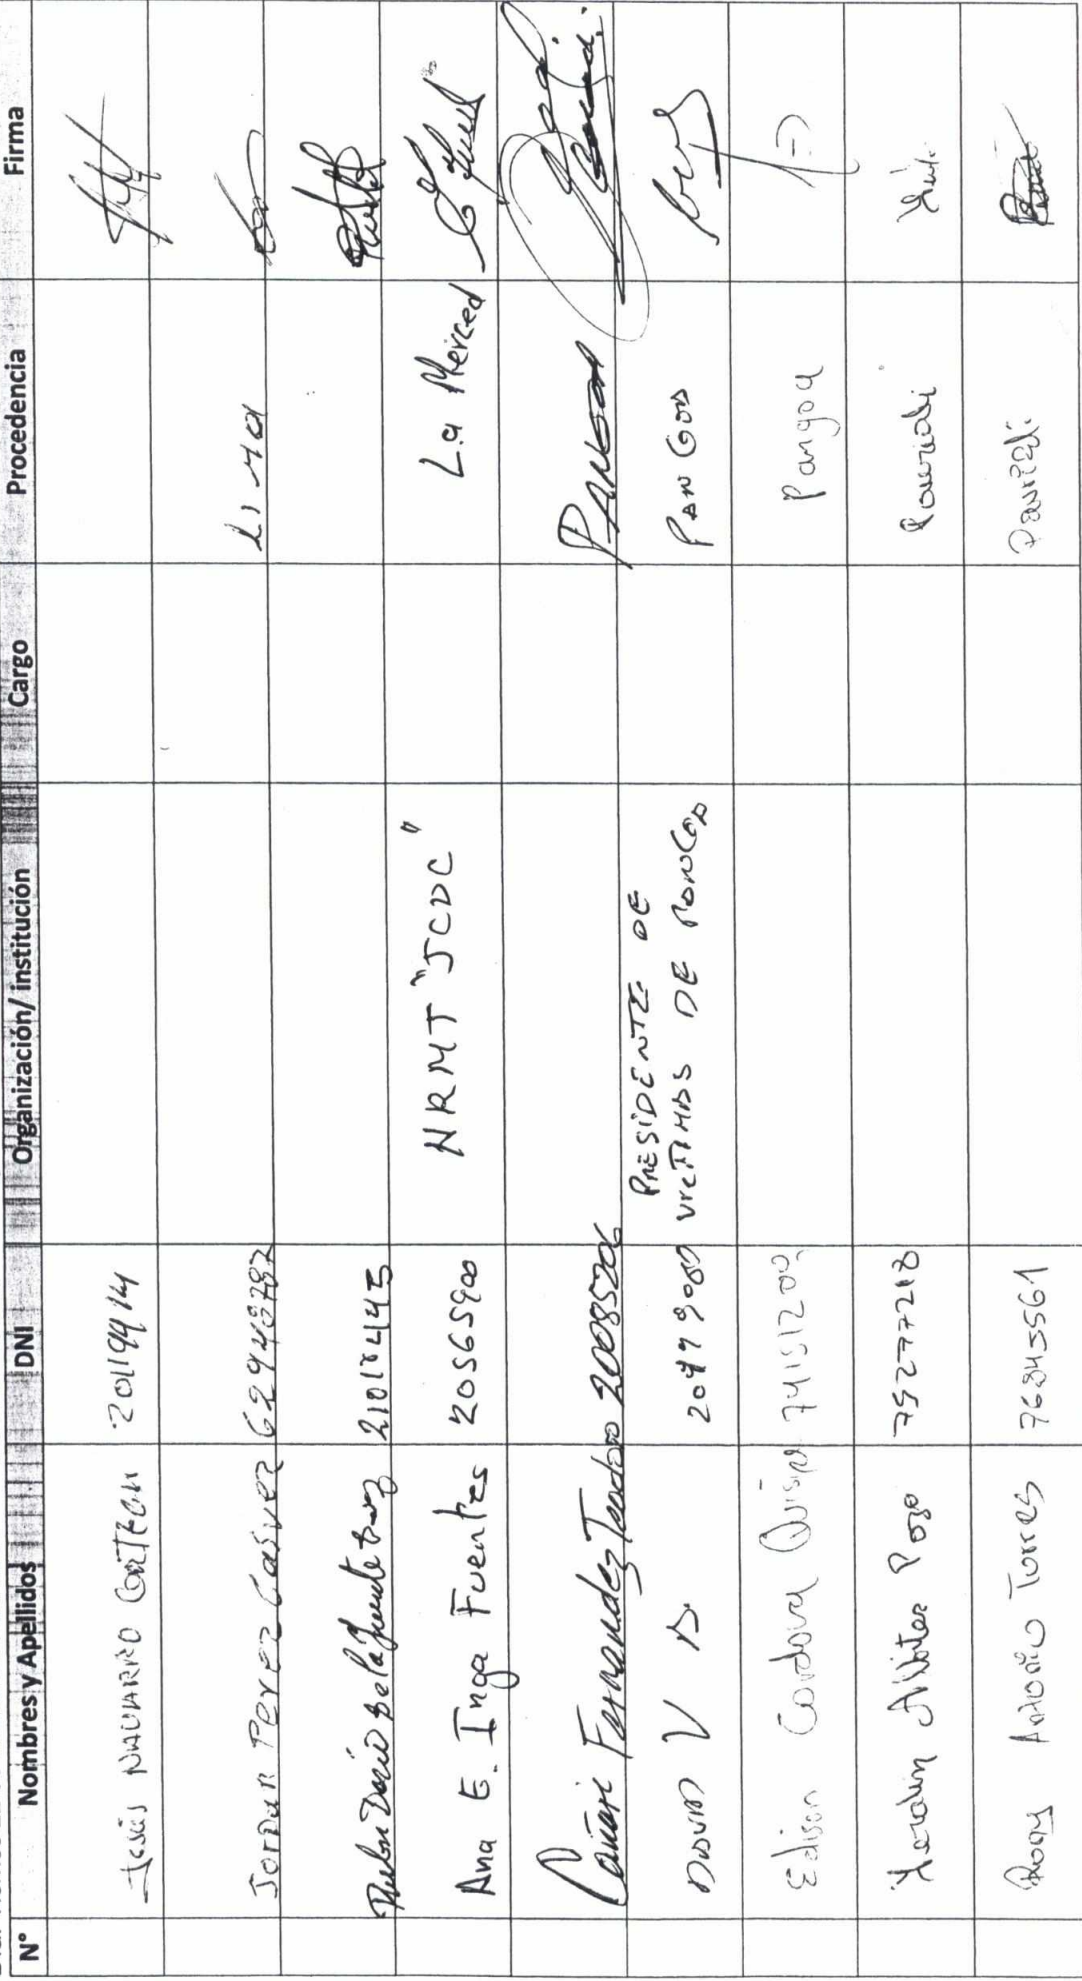 N° Nombres y Apellidos DNI Organización/ institución Cargo Procedencia Firma
Jesús NAVARRO 20119914
JorDaN Perez Casvez 62943787 Lima
Rubén Darío De la fuente 21018445
Ana E. Inga Fuentes 20565900 HRMT "JCDC" La Merced
Cañari Fernandez Teodoro 20085206 PANGOA
DAVID V D. PRESIDENTE DE
VICTIMAS DE PANGOA PANGOA
Edison Cordova Quispe 74151209 Pangoa
Pozo 75277218
Rony Antonio Torres 76845561